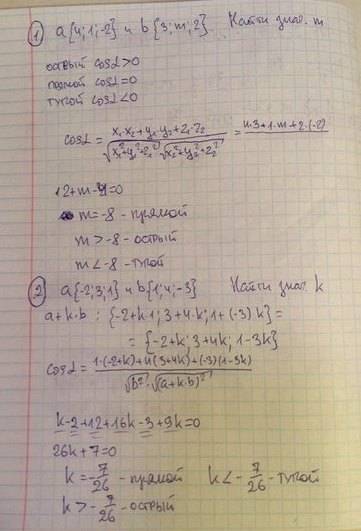 ① a{4;1;-2} и b{3;m;2} Найти знач. m
острый cosα>0
прямой cosα=0
тупой cosα<0
cosα = x₁·x₂+y₁·y₂+z₁·z₂ / √x₁²+y₁²+z₁² √x₂²+y₂²+z₂² = 4·3+1·m+2·(-2)
12+m-4=0
m=-8 - прямой
m>-8 - острый
m<-8 - тупой
② a{-2;3;1} и b{1;4;-3} Найти знач. k
a+k·b : {-2+k·1; 3+4·k; 1+(-3)k} =
= {-2+k; 3+4k; 1-3k}
cosα = 1·(-2+k)+4(3+4k)+(-3)(1-3k) / √b² · √(a+k·b)²
k-2+12+16k-3+9k=0
26k+7=0
k=-7/26 - прямой k<-7/26 - тупой
k>-7/26 - острый